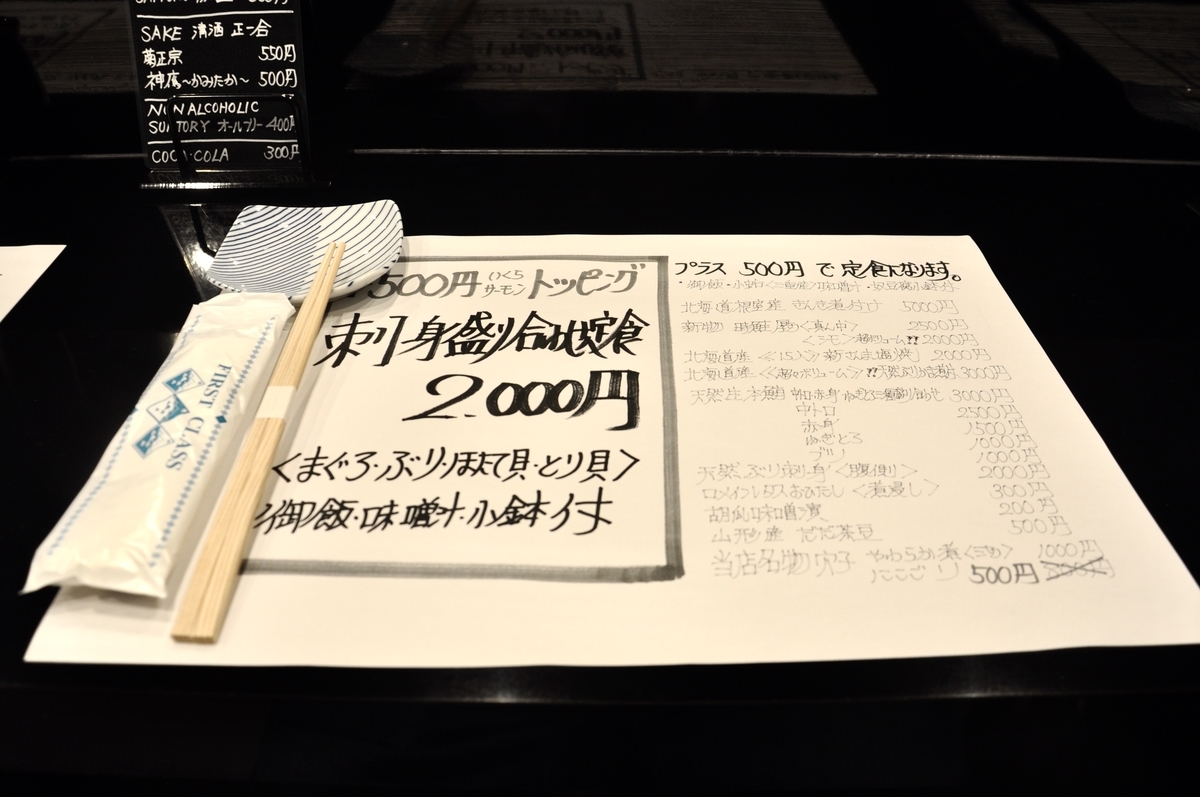 SAKE 清酒 正一合
菊正宗 550円
神鷹〜かみたか〜 500円
NON ALCOHOLIC
SUNTORY オールフリー 400円
COCA・COLA 300円
FIRST CLASS
500円 いくら サーモン トッピング
刺身盛り合わせ定食
2.000円
<まぐろ・ぶり・ほたて貝・とり貝>
御飯・味噌汁・小鉢付
プラス 500円 で 定食になります。
北海道根室産 きんき煮付け 5000円
2500円
2000円
北海道産 新さんま塩焼 2000円
北海道産 3000円
天然生本鮪 中トロ赤身 3000円
中トロ 2500円
赤身 1500円
ねぎとろ 1000円
ブツ 1000円
天然ぶり刺し身<腹側> 2000円
ロメインレタスおひたし <煮浸し> 300円
胡瓜味噌漬 200円
山形産 だだ茶豆 500円
当店名物穴子 やわらか煮 1000円
にこごり 500円